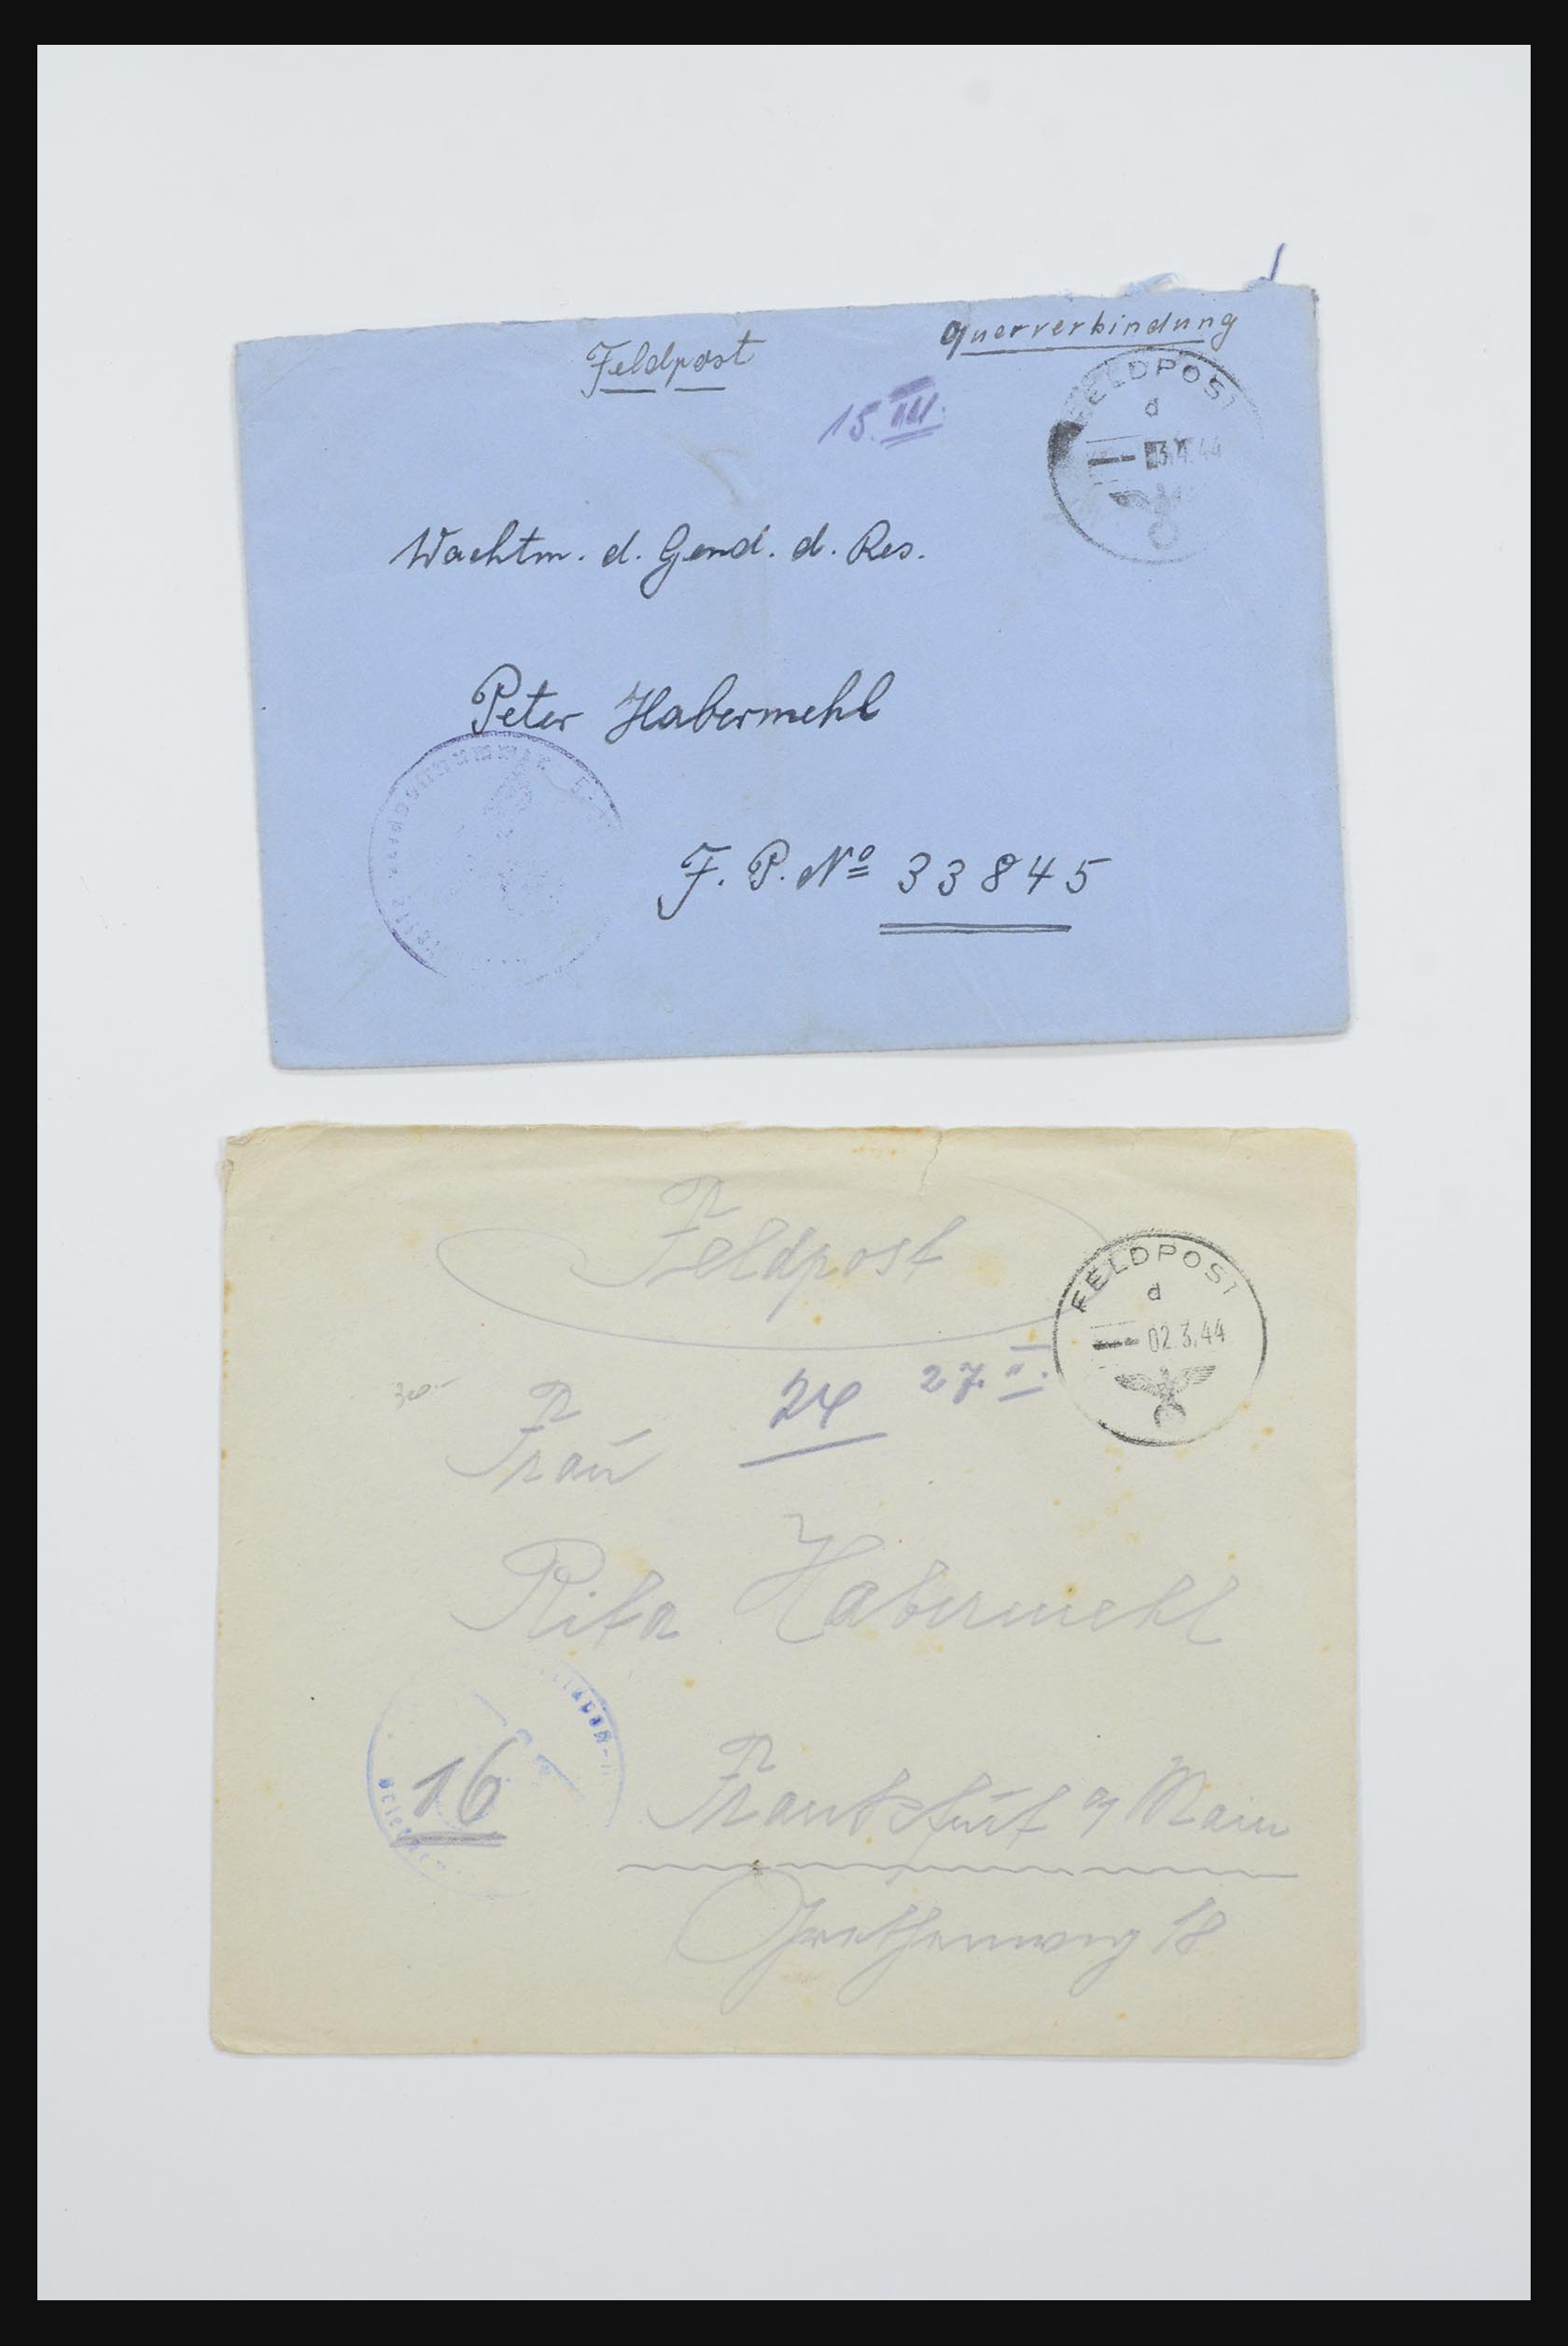 Feldpost
Querverbindung
15. III.
FELDPOST
d
Wachtm. d. Gend. d. Res.
Peter Habermehl
F. P. Nº 33845
Feldpost
FELDPOST
d
02.3.44
24
27. II.
Frau
Rita Habermehl
16
Frankfurt a/ Main
Grethenweg 18